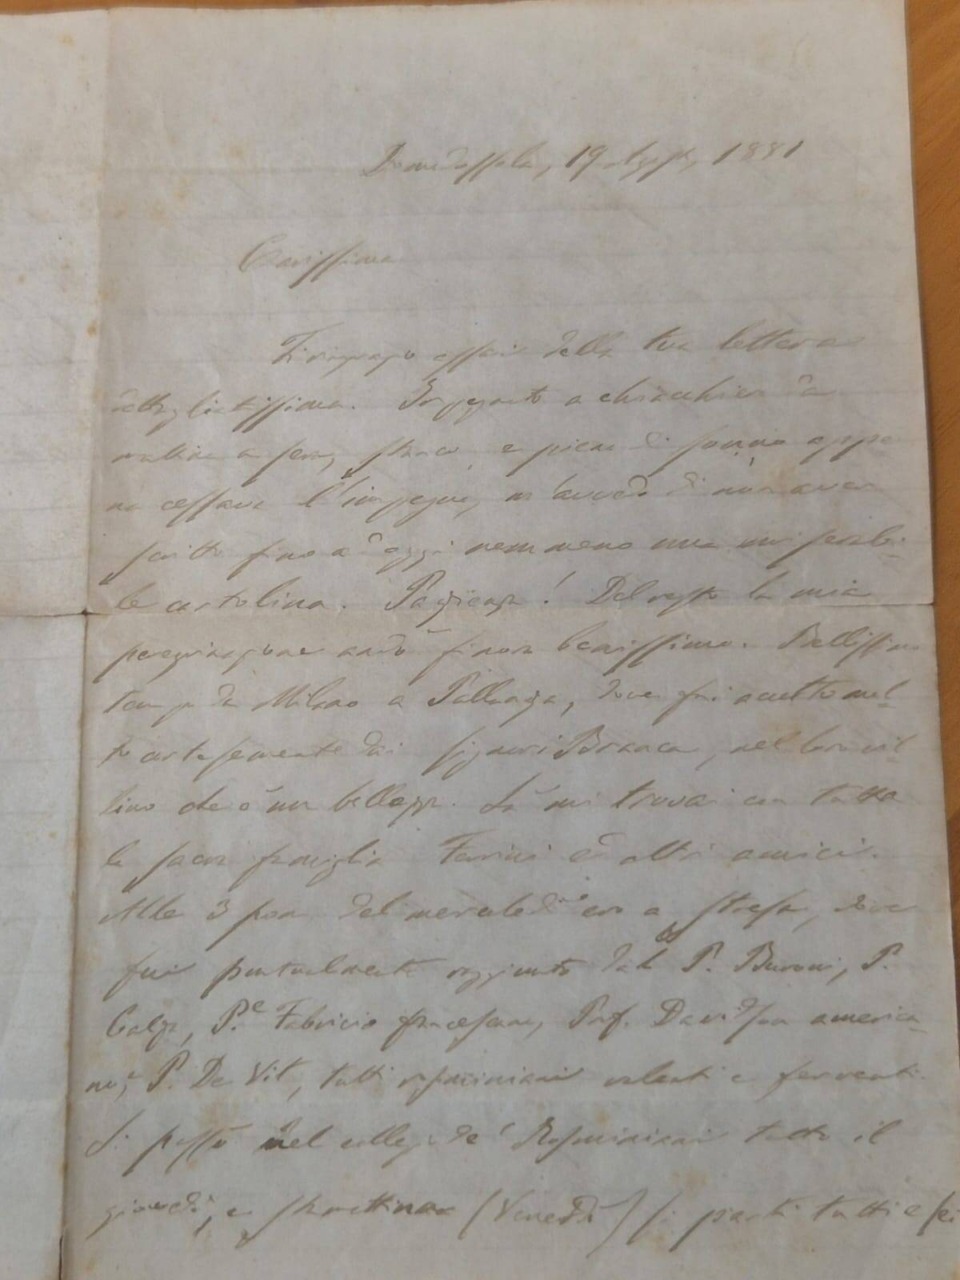 Domodossola, 19 Agosto, 1881
Carissima
Ti ringrazio assai della tua lettera
dettagliatissima. Impegnato a chiacchierar da
mattina a sera, stracco, e pieno di sonno appe
na cessava l'impegno, m'avvedo di non aver
scritto fino ad oggi nemmeno una miserabi-
le cartolina. Pazienza! Del resto la mia
peregrinazione andò finora benissimo. Bellissimo
tempo da Milano a Pallanza, dove fui accolto mol-
to cortesemente dai Signori Branca, nel loro vil
lino che è una bellezza. Là mi trovai con tutta
la sacra famiglia Farini ed altri amici.
Alle 3 pom. del mercoledì ero a Stresa, dove
fui puntualmente raggiunto dal P. Buroni, P.
Calza, P.e Fabricio francescano, Prof. Davidson america-
no, P. De Vit, tutti rosminiani valenti e ferventi.
Si passò nel collegio de' Rosminiani tutto il
giovedì, e stamattina (Venerdì) si partì tutti e sei